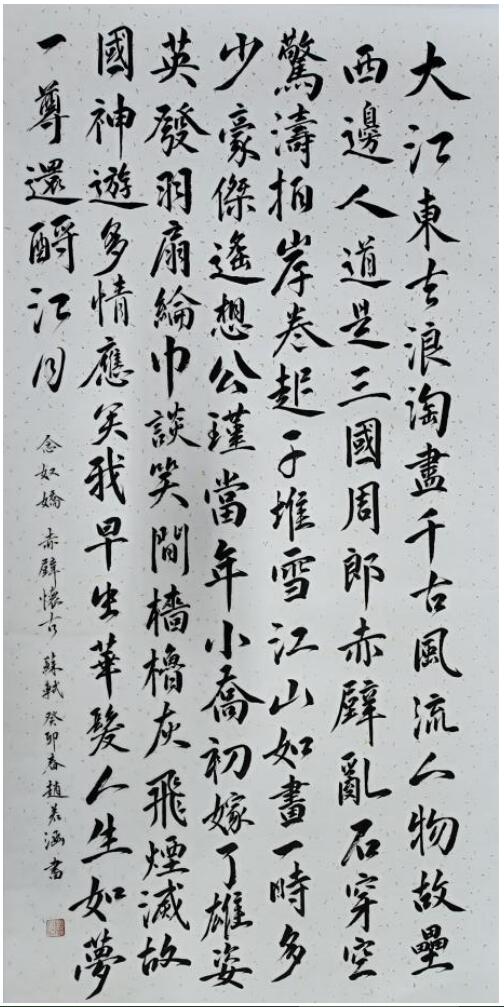 大江東去浪淘盡千古風流人物故壘
西邊人道是三國周郎赤壁亂石穿空
驚濤拍岸卷起千堆雪江山如畫一時多
少豪傑遙想公瑾當年小喬初嫁了雄姿
英發羽扇綸巾談笑間檣櫓灰飛煙滅故
國神遊多情應笑我早生華髮人生如夢
一尊還酹江月
念奴嬌 赤壁懷古 蘇軾 癸卯春趙若涵書